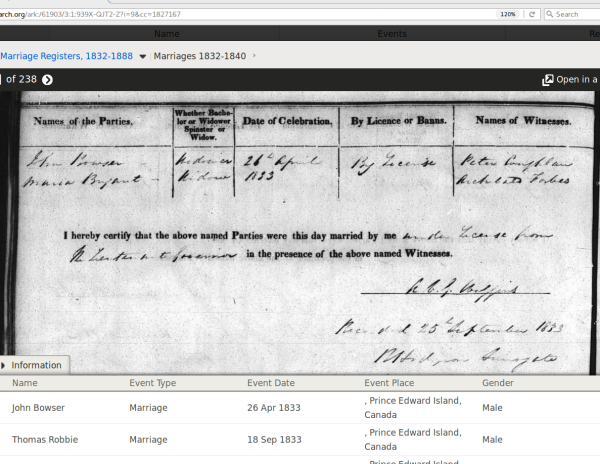 arch.org/ark:/61903/3:1:939X-QJT2-Z?i=9&cc=1827167 120% Search
Name Events Re
Marriage Registers, 1832-1888 Marriages 1832-1840
of 238 Open in a
Names of the Parties. Whether Bache-
lor or Widower
Spinster or
Widow. Date of Celebration. By Licence or Banns. Names of Witnesses.
John Bowser Widower 26th April By License Peter Coughlan
Maria Bryant Widow 1833 Archibald Forbes
I hereby certify that the above named Parties were this day married by me under License from
the Lieutenant Governor in the presence of the above named Witnesses.
Recorded 25th September 1833
Surrogate
Information
Name Event Type Event Date Event Place Gender
John Bowser Marriage 26 Apr 1833 , Prince Edward Island,
Canada Male
Thomas Robbie Marriage 18 Sep 1833 , Prince Edward Island,
Canada Male
, Prince Edward Island,